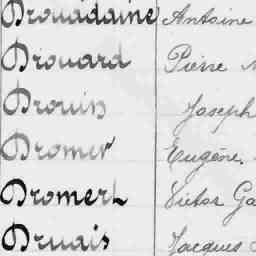 Drouadaine Antoine
Drouard Pierre
Drouin Joseph
Dromer Eugène
Dromert Victor
Druais Jacques